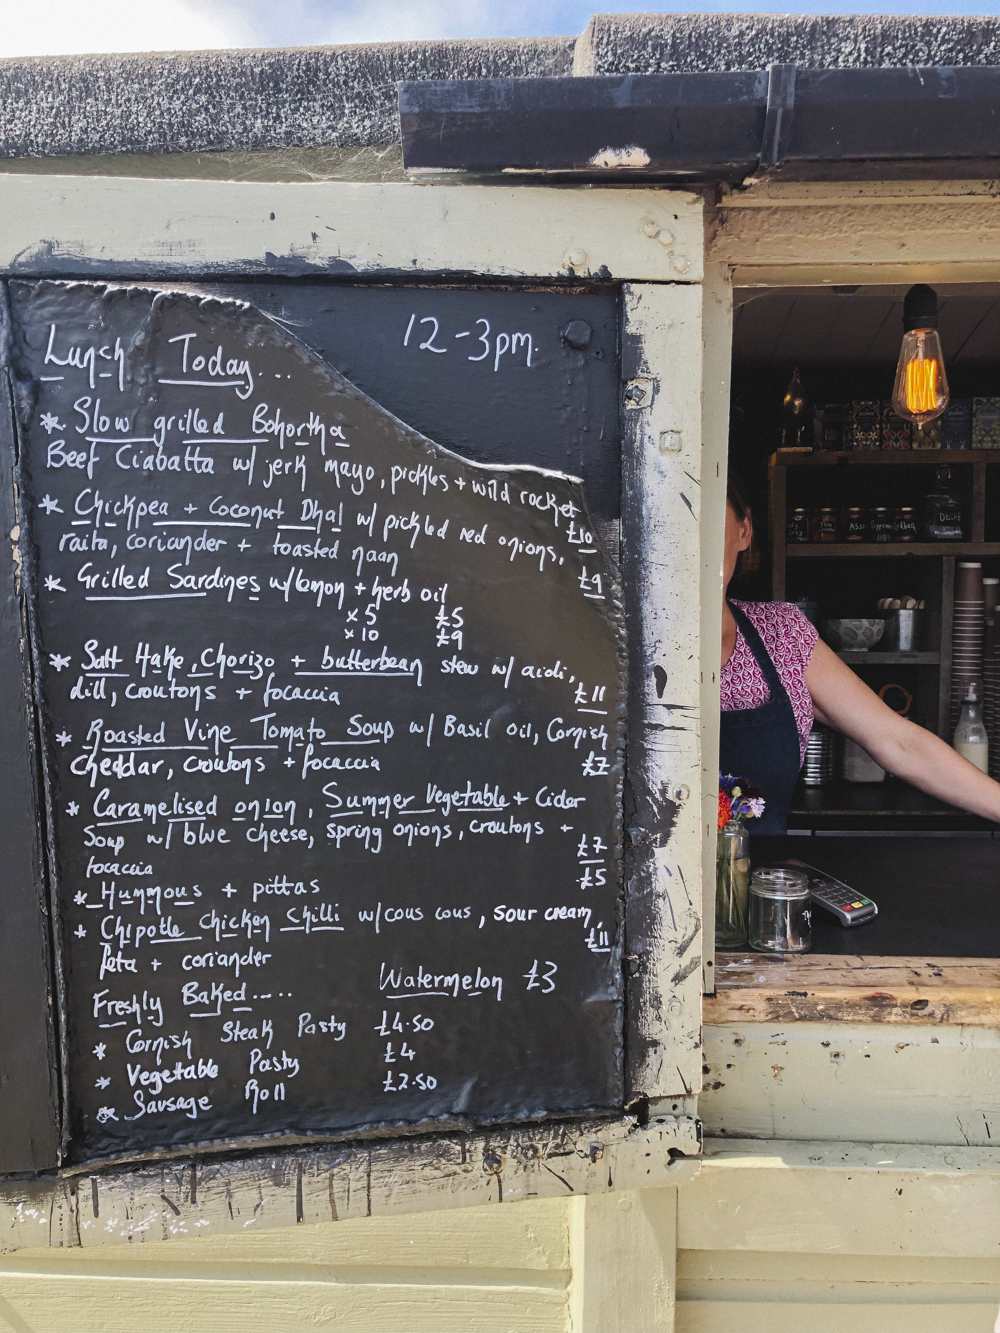 12-3pm.
Lunch Today...
* Slow grilled Bohortha
Beef Ciabatta w/ jerk mayo, pickles + wild rocket
£10
* Chickpea + Coconut Dhal w/ pickled red onions,
raita, coriander + toasted naan
£9
* Grilled Sardines w/ lemon + herb oil
x 5 £5
x 10 £9
* Salt Hake, Chorizo + butterbean stew w/ aioli,
dill, croutons + focaccia
£11
* Roasted Vine Tomato Soup w/ Basil oil, Cornish
cheddar, croutons + focaccia
£7
* Caramelised onion, Summer Vegetable + Cider
Soup w/ blue cheese, spring onions, croutons +
focaccia
£7
* Hummous + pittas
£5
* Chipotle chicken chilli w/ cous cous, sour cream,
feta + coriander
£11
Watermelon £3
Freshly Baked.....
* Cornish Steak Pasty £4.50
* Vegetable Pasty £4
* Sausage Roll £2.50